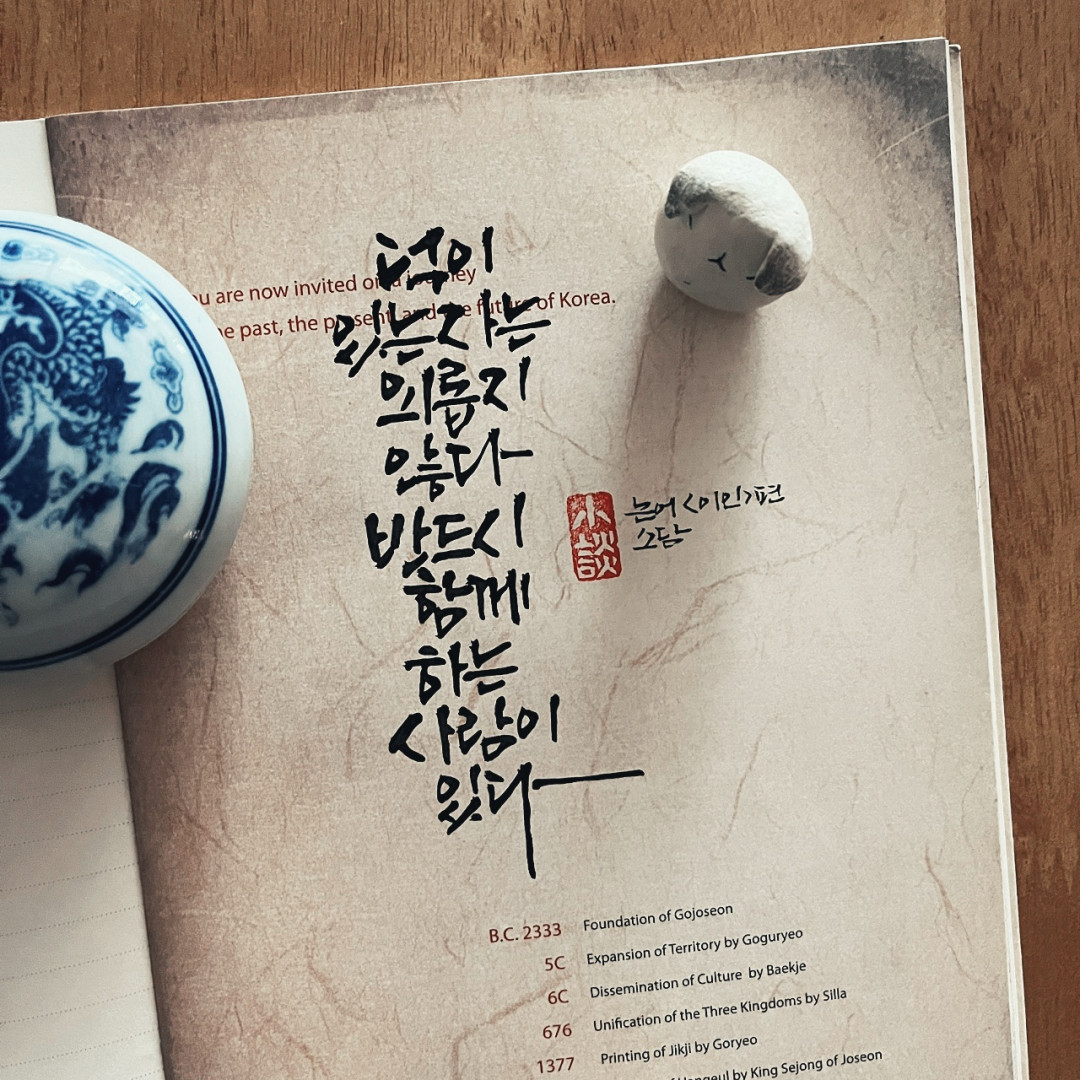 덕이
있는 자는
외롭지
않다
반드시
함께
하는
사람이
있다
are now invited on a journey
past, the present, and the future of Korea.
小談
논어 <이인>편
소담
B.C. 2333 Foundation of Gojoseon
5C Expansion of Territory by Goguryeo
6C Dissemination of Culture by Baekje
676 Unification of the Three Kingdoms by Silla
1377 Printing of Jikji by Goryeo
of Hangeul by King Sejong of Joseon